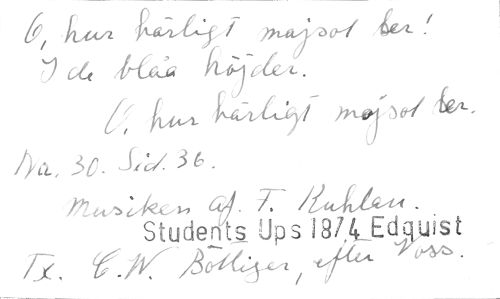 O, hur härligt majsol ler!
I de blåa höjder.
O, hur härligt majsol ler.
No. 30. Sid. 36.
Musiken af F. Kuhlau.
Students Ups 1874 Edquist
Tx. C. W. Böttiger, efter Voss.